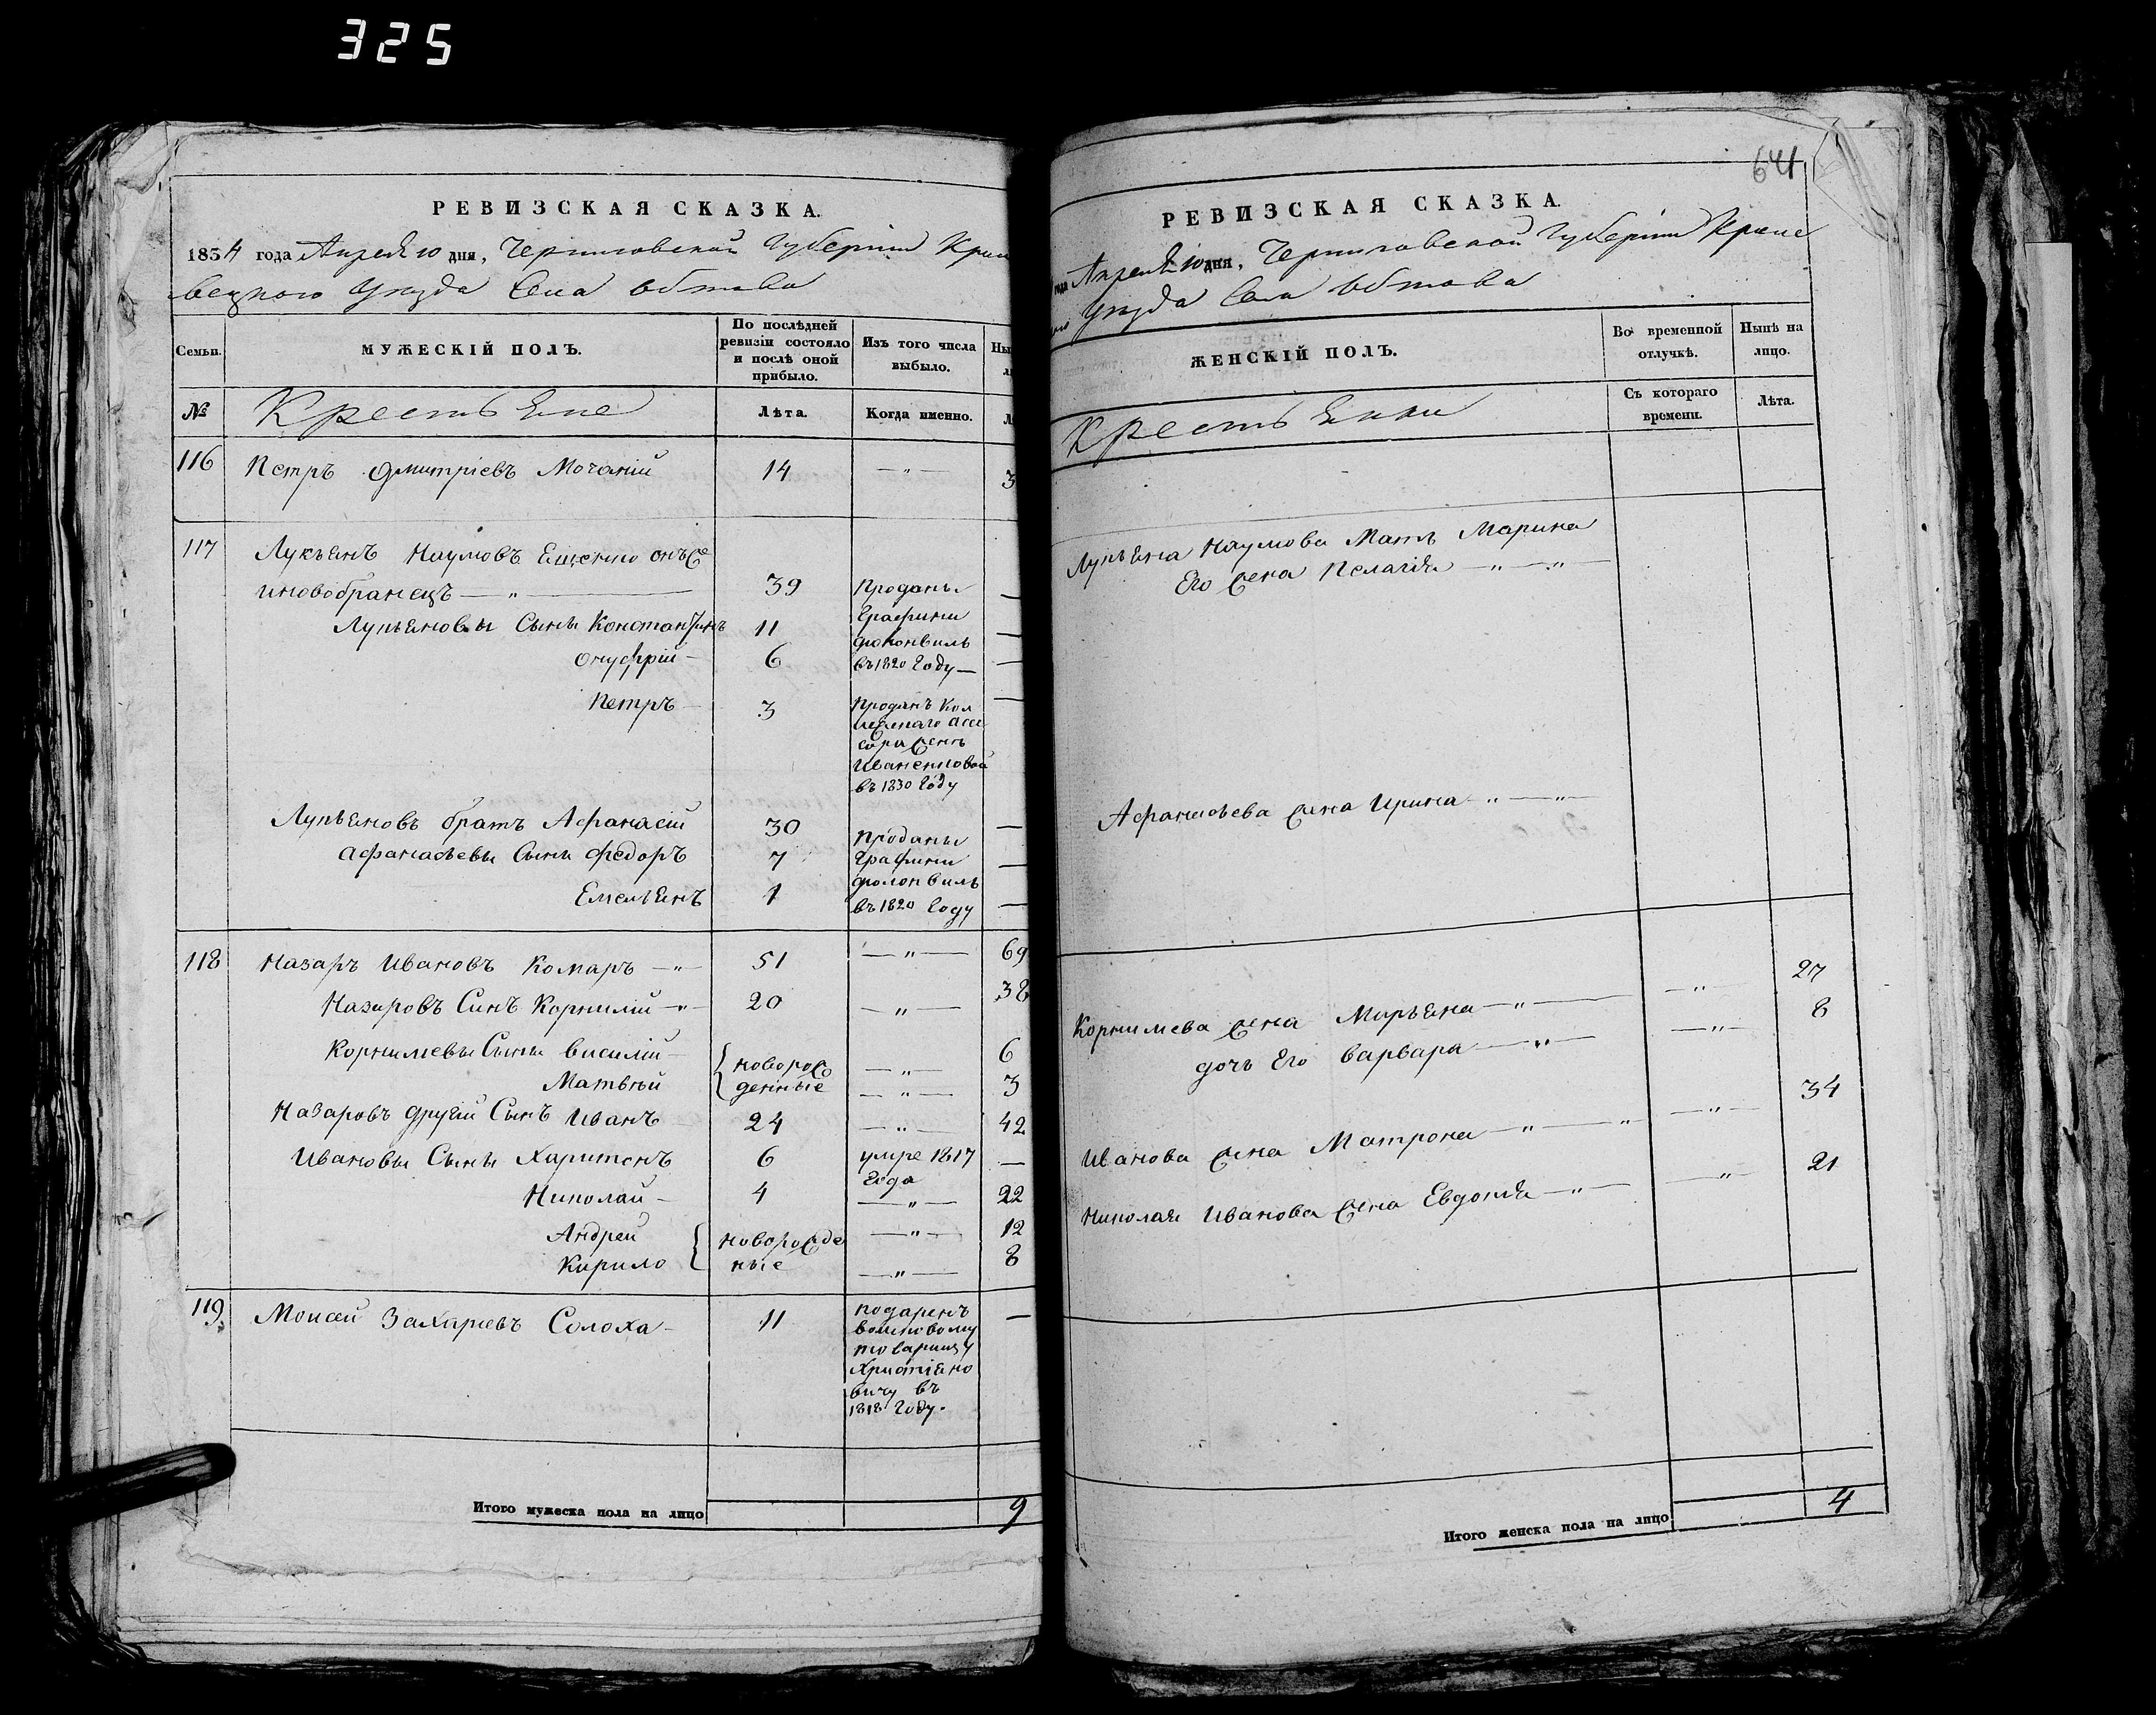 325
РЕВИЗСКАЯ СКАЗКА.
1834 года Апреля 10 дня, Черниговской Губернии Кроле
вецкого Уезда Села Обтова
Семьи.
МУЖЕСКІЙ ПОЛЪ.
По послѣдней ревизіи состояло и послѣ оной прибыло.
Изъ того числа выбыло.
№
Крестьяне
Лѣта.
Когда именно.
116 Петръ Дмитріевъ 14 —〃— 3
117 Лукьянъ Наумовъ Ещенко онъ же
39 Проданы
Графини
Лукьяновы Сыны Константинъ 11
Онуфрій — 6 въ 1820 Году —
Петръ — 3 Проданъ Кол
лежскаго Ассе
сора жене
Иваненковой
въ 1830 Году
Лукьяновъ братъ Афанасій 30 —
Проданы
Афанасьевы Сыны Федоръ 7 Графини —
Емельянъ 1 въ 1820 Году —
118 Назаръ Ивановъ Комаръ —〃— 51 —〃— 69
Назаровъ Синъ Корнилій —〃— 20 —〃— 38
Корнилиевы Сыны Василій — 6
{ новорож —〃—
Матвѣй { денные —〃— 3
Назаровъ другій Сынъ Иванъ 24 —〃— 42
Ивановы Сыны Харитонъ 6 умре 1817 —
Года
Николай — 4 —〃— 22
Андрей { новорожде —〃— 12
Кирило ные —〃— 8
119. Моисей Захариевъ Солоха — 11 подаренъ —
войсковому
товарищу
Христіано
вичу въ
1818 Году.
Итого мужеска пола на лицо 9
641
РЕВИЗСКАЯ СКАЗКА.
года Апреля 10 дня, Черниговской Губернии Кроле
Уезда Села Обтова
ЖЕНСКІЙ ПОЛЪ.
Во временной отлучкѣ.
Нынѣ на лицо.
Крестьянки
Съ котораго времени.
Лѣта.
Лукьяна Наумова Мать Марина
Его жена Пелагія —〃—〃—
Афанасьева жена Ирина —〃—〃—
Корнилиева жена Марьяна —〃— —〃— 27
дочь Его Варвара —〃— —〃— 8
Иванова жена Матрона —〃—〃 —〃— 34
Николая Иванова жена Евдокія —〃— —〃— 21
Итого женска пола на лицо 4